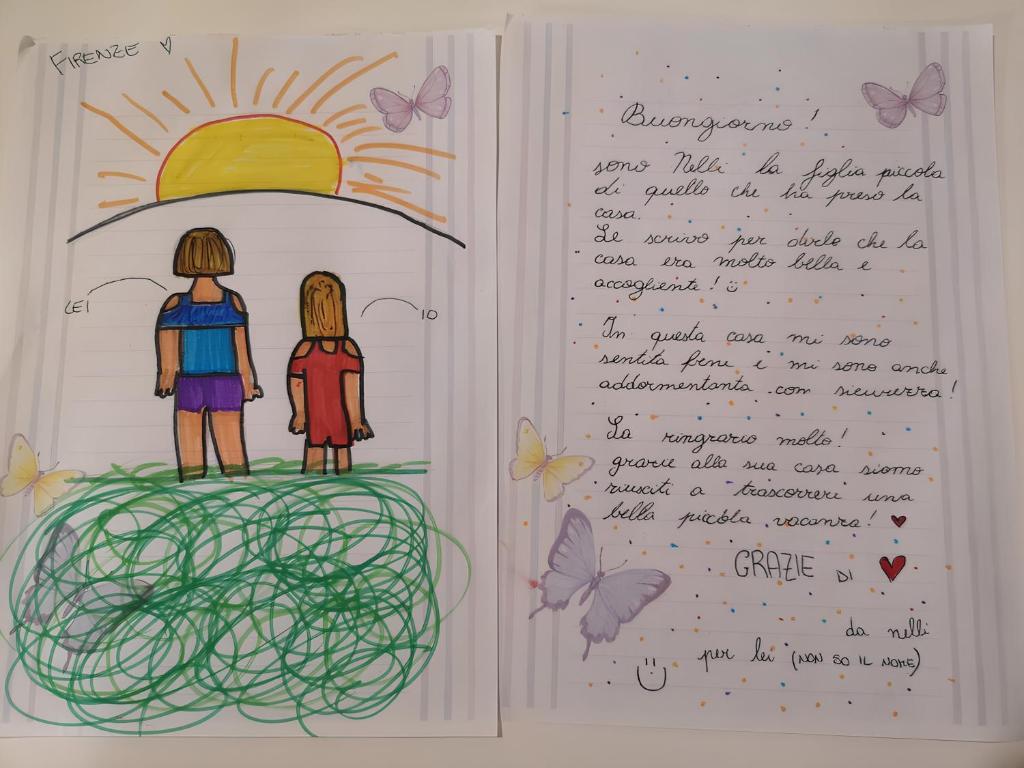 FIRENZE ♡
LEI
IO
Buongiorno!
sono Nelli la figlia piccola
di quello che ha preso la
casa.
Le scrivo per dirle che la
casa era molto bella e
accogliente! ☺
In questa casa mi sono
sentita bene e mi sono anche
addormentanta con sicurezza!
La ringrazio molto!
grazie alla sua casa siamo
riusciti a trascorrere una
bella piccola vacanza! ♥
GRAZIE DI ♥
da nelli
per lei (NON SO IL NOME)